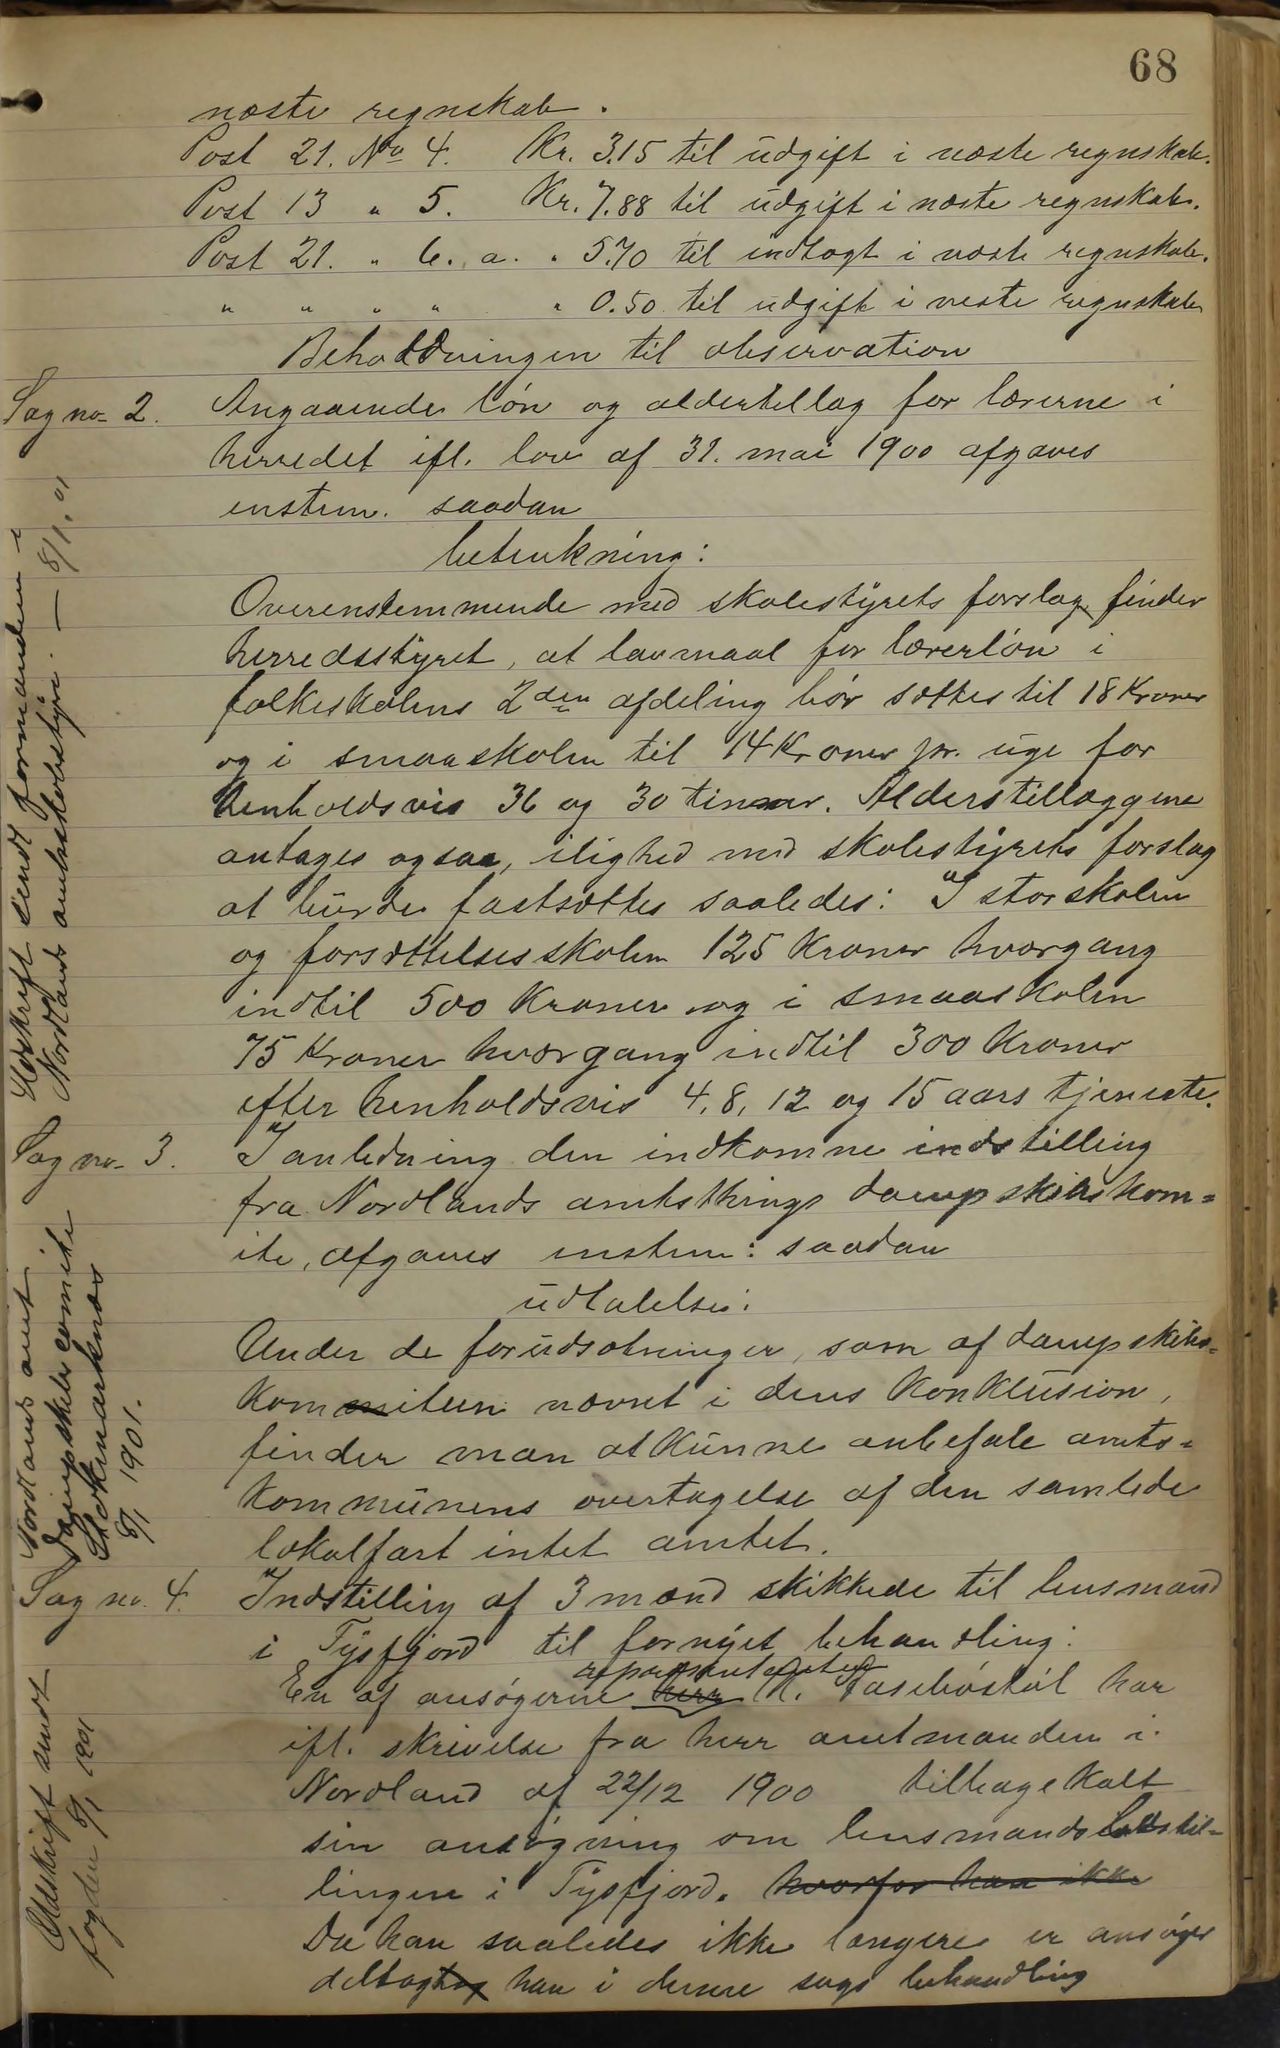 68
næste regnskab.
Post 21. No 4. Kr. 3.15 til udgift i næste regnskab.
Post 13 " 5. Kr. 7.88 til udgift i næste regnskab.
Post 21. " 6. a. " 5.70 til indtægt i næste regnskab.
" " " " " 0.50 til udgift i neste regnskab
Beholdningen til observation
Sag no 2. Angaaende løn og alderstillæg for lærerne i
herredet ifl. lov af 31. mai 1900 afgaves
enstem. saadan
betenkning:
Overenstemmende med skolestyrets forslag finder
herredsstyret, at lavmaal for lærerløn i
folkeskolens 2den afdeling bør sættes til 18 Kroner
og i smaaskolen til 14 Kroner pr. uge for
henholdsvis 36 og 30 timer. Alderstillæggene
antages ogsaa, ilighed med skolestyrets forslag
at burde fastsættes saaledes: I storskolen
og forsættelsesskolen 125 Kroner hvergang
indtil 500 Kroner og i smaaskolen
75 Kroner hvergang indtil 300 Kroner
efter henholdsvis 4, 8, 12 og 15 aars tjeneste.
Udskrift sendt formanden i
Nordlands amtsskolestyre. — 8/1. 01
Sag no 3. I anledning den indkomne indstilling
fra Nordlands amtsthings dampskibskom=
ite, afgaves enstem: saadan
udtalelse:
Under de forudsætninger, som af dampskibs=
Komiteen nævnt i dens Konklusion,
finder man at Kunne anbefale amts=
Kommunens overtagelse af den samlede
lokalfart intet amtet.
Nordlands amt
Dampskibs comite
Stokmarknæs
8/1 1901.
Sag no. 4. Indstilling af 3 mænd skikkede til lensmand
i Tysfjord til fornyet behandling:
repræsentanten
En af ansøgerne herr K. har
ifl. skrivelse fra herr amtmanden i
Nordland af 22/12 1900 tilbagekalt
sin ansøgning om lensmandsbestil=
lingen i Tysfjord. hvorfor han ikke
Da han saaledes ikke længere er ansøger
deltog han i denne sags behandling
Udskrift sendt
fogden 8/1 1901